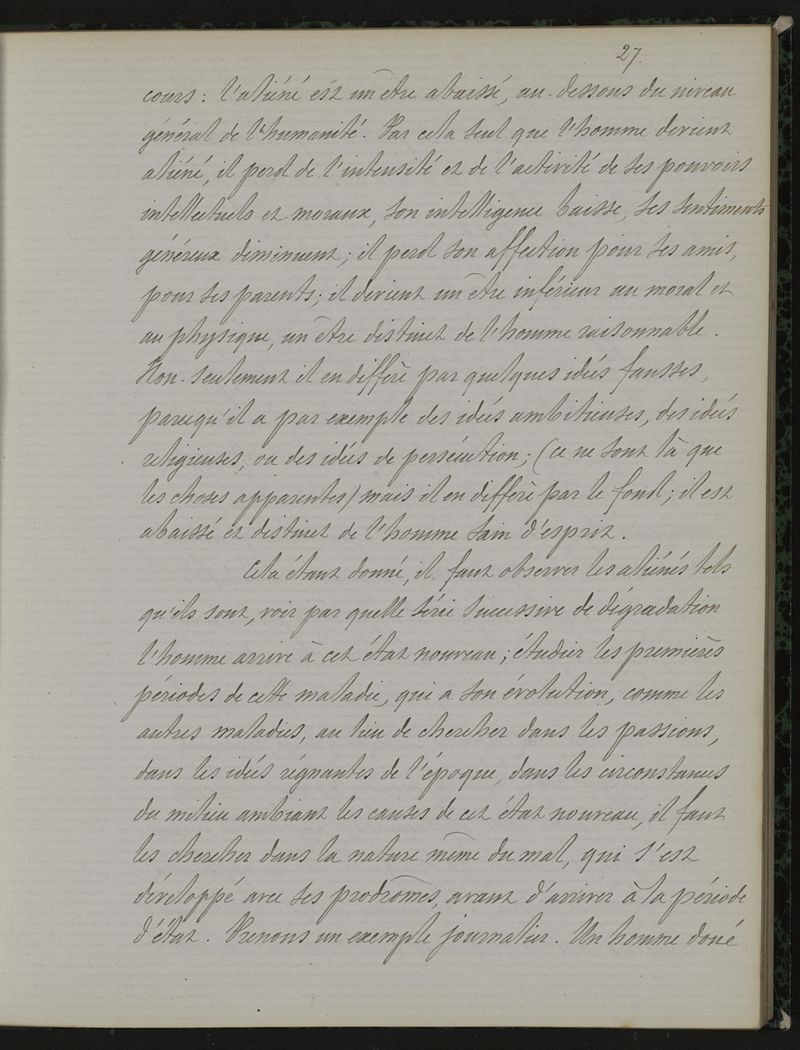 27.
cours : l'aliéné est un être abaissé, au-dessous du niveau
général de l'humanité. Par cela seul que l'homme devient
aliéné, il perd de l'intensité et de l'activité de ses pouvoirs
intellectuels et moraux, son intelligence baisse, ses sentiments
généreux diminuent ; il perd son affection pour ses amis,
pour ses parents ; il devient un être inférieur au moral et
au physique, un être distinct de l'homme raisonnable.
Non-seulement il en diffère par quelques idées fausses,
parcequ'il a par exemple des idées ambitieuses, des idées
religieuses, ou des idées de persécution ; (ce ne sont là que
les choses apparentes) mais il en diffère par le fond ; il est
abaissé et distinct de l'homme sain d'esprit.
Cela étant donné, il faut observer les aliénés tels
qu'ils sont, voir par quelle série successive de dégradation
l'homme arrive à cet état nouveau ; étudier les premières
périodes de cette maladie, qui a son évolution, comme les
autres maladies, au lieu de chercher dans les passions,
dans les idées régnantes de l'époque, dans les circonstances
du milieu ambiant les causes de cet état nouveau, il faut
les chercher dans la nature même du mal, qui s'est
développé avec ses prodrômes, avant d'arriver à la période
d'état. Prenons un exemple journalier. Un homme doué